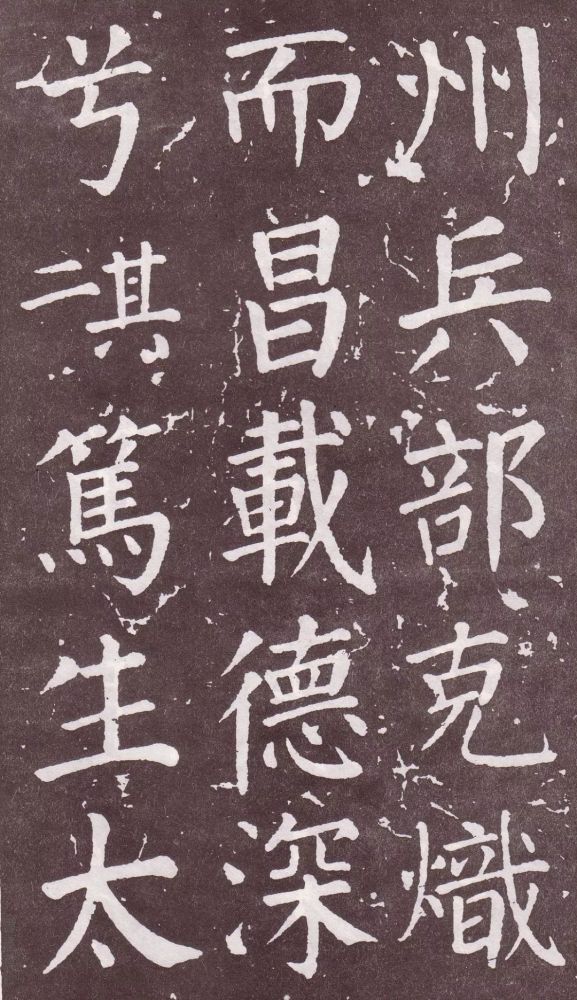 州兵部克熾
而昌載德深
兮其二篤生太